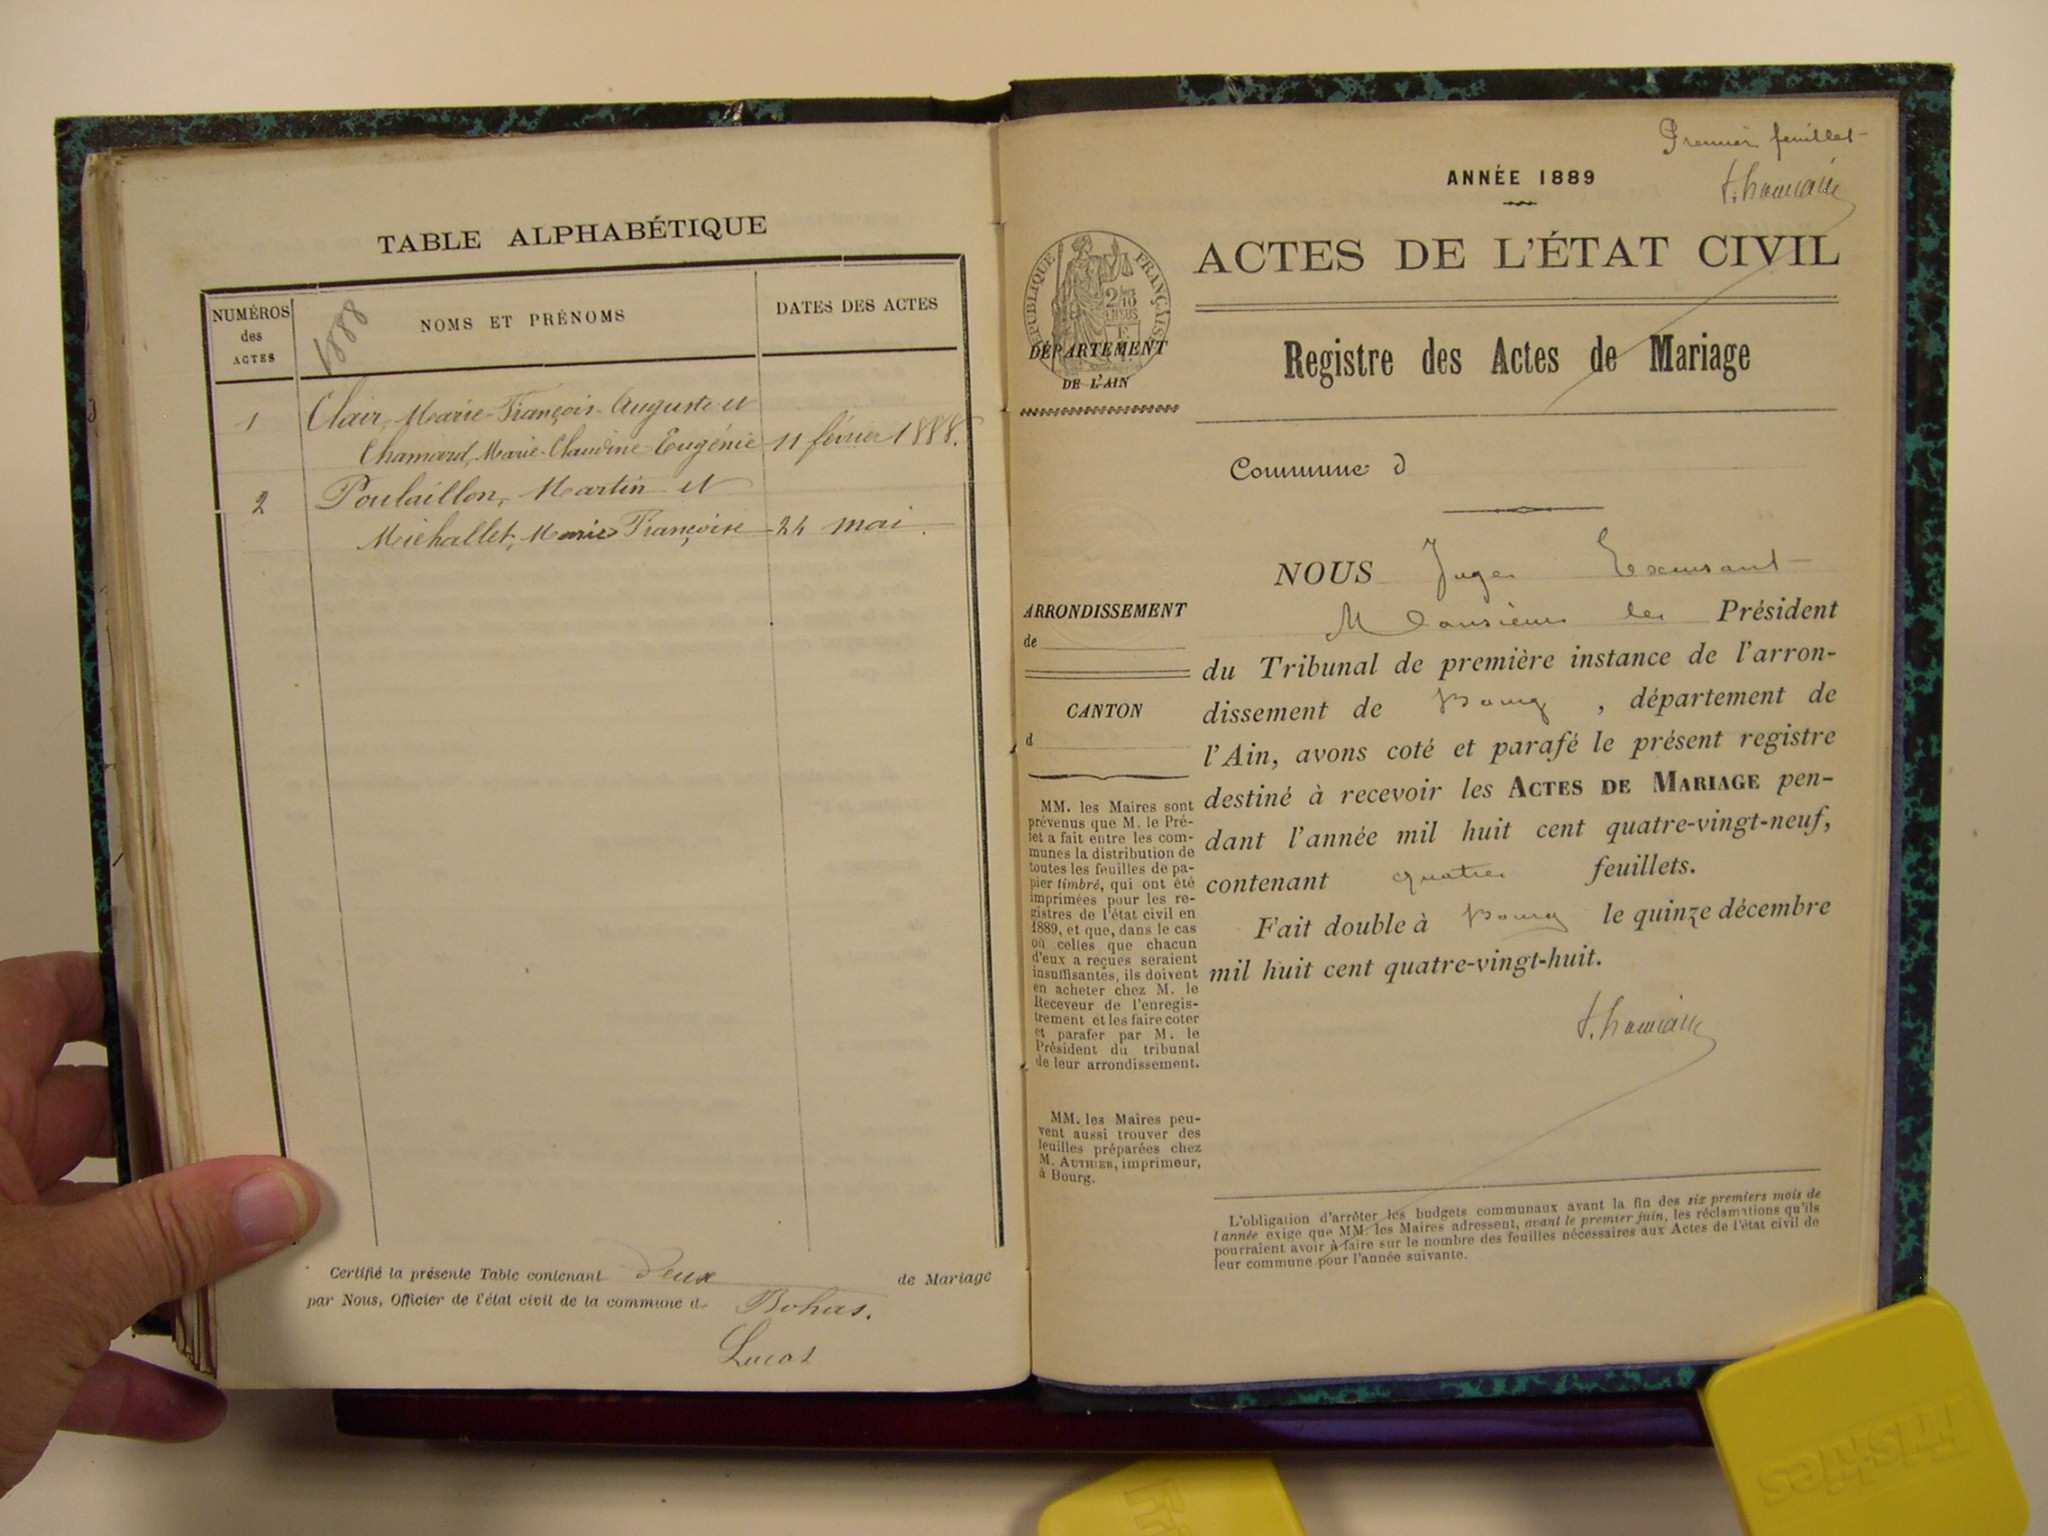 TABLE ALPHABÉTIQUE
NUMÉROS
des
ACTES
1888
NOMS ET PRÉNOMS
DATES DES ACTES
1 Clair, Marie-François-Auguste et
Chamard, Marie-Claudine Eugénie 11 février 1888.
2 Poulaillon, Martin et
Michallet, Marie Françoise 24 mai.
Certifié la présente Table contenant deux de Mariage
par Nous, Officier de l'état civil de la commune d Bohas.
Lucas
Premier feuillet
ANNÉE 1889
ACTES DE L'ÉTAT CIVIL
RÉPUBLIQUE FRANÇAISE
2/10
EN SUS
DÉPARTEMENT
DE L'AIN
Registre des Actes de Mariage
Commune d
NOUS Juge
Monsieur le Président
du Tribunal de première instance de l'arron-
dissement de Bourg, département de
l'Ain, avons coté et parafé le présent registre
destiné à recevoir les ACTES DE MARIAGE pen-
dant l'année mil huit cent quatre-vingt-neuf,
contenant quatre feuillets.
Fait double à Bourg le quinze décembre
mil huit cent quatre-vingt-huit.
ARRONDISSEMENT
de
CANTON
d
MM. les Maires sont
prévenus que M. le Pré-
fet a fait entre les com-
munes la distribution de
toutes les feuilles de pa-
pier timbré, qui ont été
imprimées pour les re-
gistres de l'état civil en
1889, et que, dans le cas
où celles que chacun
d'eux a reçues seraient
insuffisantes, ils doivent
en acheter chez M. le
Receveur de l'enregis-
trement et les faire coter
et parafer par M. le
Président du tribunal
de leur arrondissement.
MM. les Maires peu-
vent aussi trouver des
feuilles préparées chez
M. AUTHIER, imprimeur,
à Bourg.
L'obligation d'arrêter les budgets communaux avant la fin des six premiers mois de
l'année exige que MM. les Maires adressent, avant le premier juin, les réclamations qu'ils
pourraient avoir à faire sur le nombre des feuilles nécessaires aux Actes de l'état civil de
leur commune pour l'année suivante.
Friskies